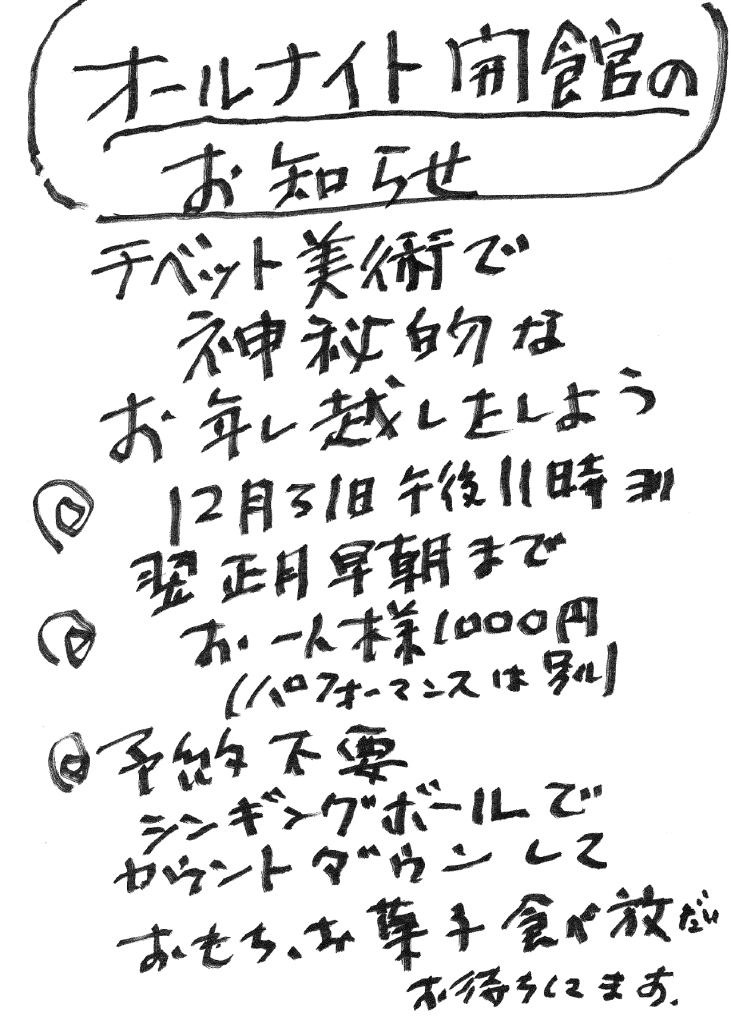 オールナイト開館の
お知らせ
チベット美術で
神秘的な
お年し越ししたしよう
12月31日午後11時ヨリ
翌正月早朝まで
お一人様1000円
(パフォーマンスは別)
予約不要
シンギングボールで
カウントダウンして
おもち、お菓子食べ放だい
お待ちしてます。